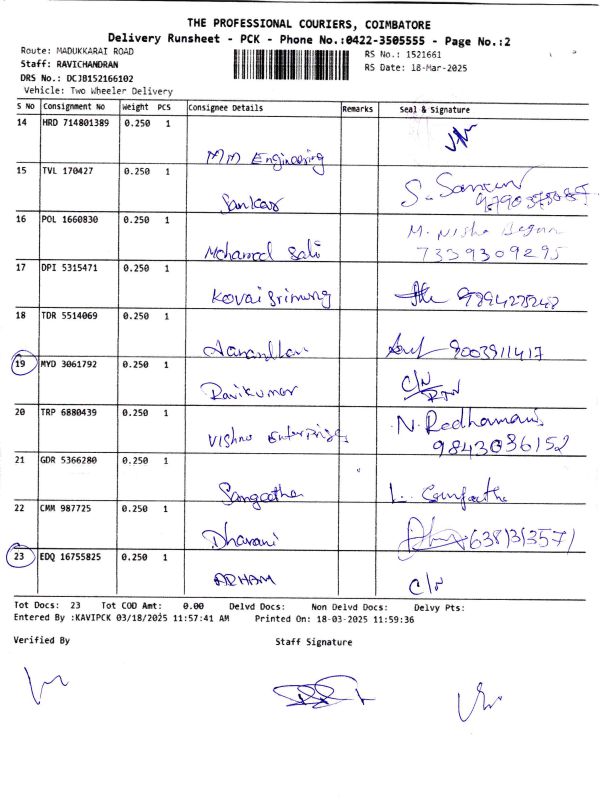 THE PROFESSIONAL COURIERS, COIMBATORE
Delivery Runsheet - PCK - Phone No.:0422-3505555 - Page No.:2
Route: MADUKKARAI ROAD
RS No.: 1521661
Staff: RAVICHANDRAN
RS Date: 18-Mar-2025
DRS No.: DCJB152166102
Vehicle: Two Wheeler Delivery
S No Consignment No Weight PCS Consignee Details Remarks Seal & Signature
14 HRD 714801389 0.250 1
MM Engineering
15 TVL 170427 0.250 1
Sankar
16 POL 1660830 0.250 1 M. Nisha Begam
Mohamed Sali 7339309295
17 DPI 5315471 0.250 1
18 TDR 5514069 0.250 1
9003911417
19 MYD 3061792 0.250 1 C/N
Ravikumar RTN
20 TRP 6880439 0.250 1 N. Radhamani
Vishnu Enterprises 9843036152
21 GDR 5366280 0.250 1
Sangeetha
22 CMM 987725 0.250 1
Dharani
23 EDQ 16755825 0.250 1
ARHAM C/N
Tot Docs: 23 Tot COD Amt: 0.00 Delvd Docs: Non Delvd Docs: Delvy Pts:
Entered By :KAVIPCK 03/18/2025 11:57:41 AM Printed On: 18-03-2025 11:59:36
Verified By Staff Signature